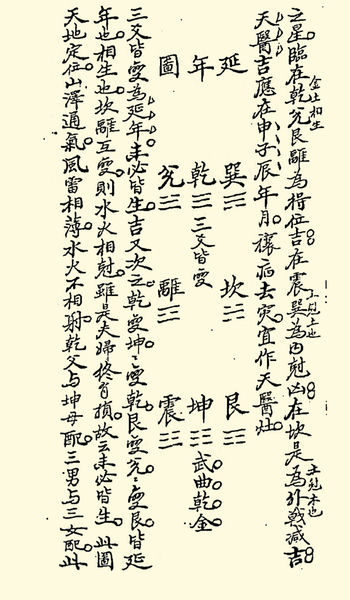 之星臨在乾兌艮離為得位吉在震巽為內尅凶在坎是為外戰減吉
金土相生
天醫吉應在申子辰年月禳病去灾宜作天醫灶
延年圖
巽☴ 坎☵ 艮☶
乾☰三爻皆變 坤☷武曲乾金
兌☱ 離☲ 震☳
三爻皆變為延年未必皆生吉又次之乾變坤〻變乾艮變兌〻變艮皆延
年也相生也坎離互變則水火相尅雖是夫婦終有損故云未必皆生此圖
天地定位山澤通氣風雷相薄水火不相射乾父與坤母配三男與三女配此